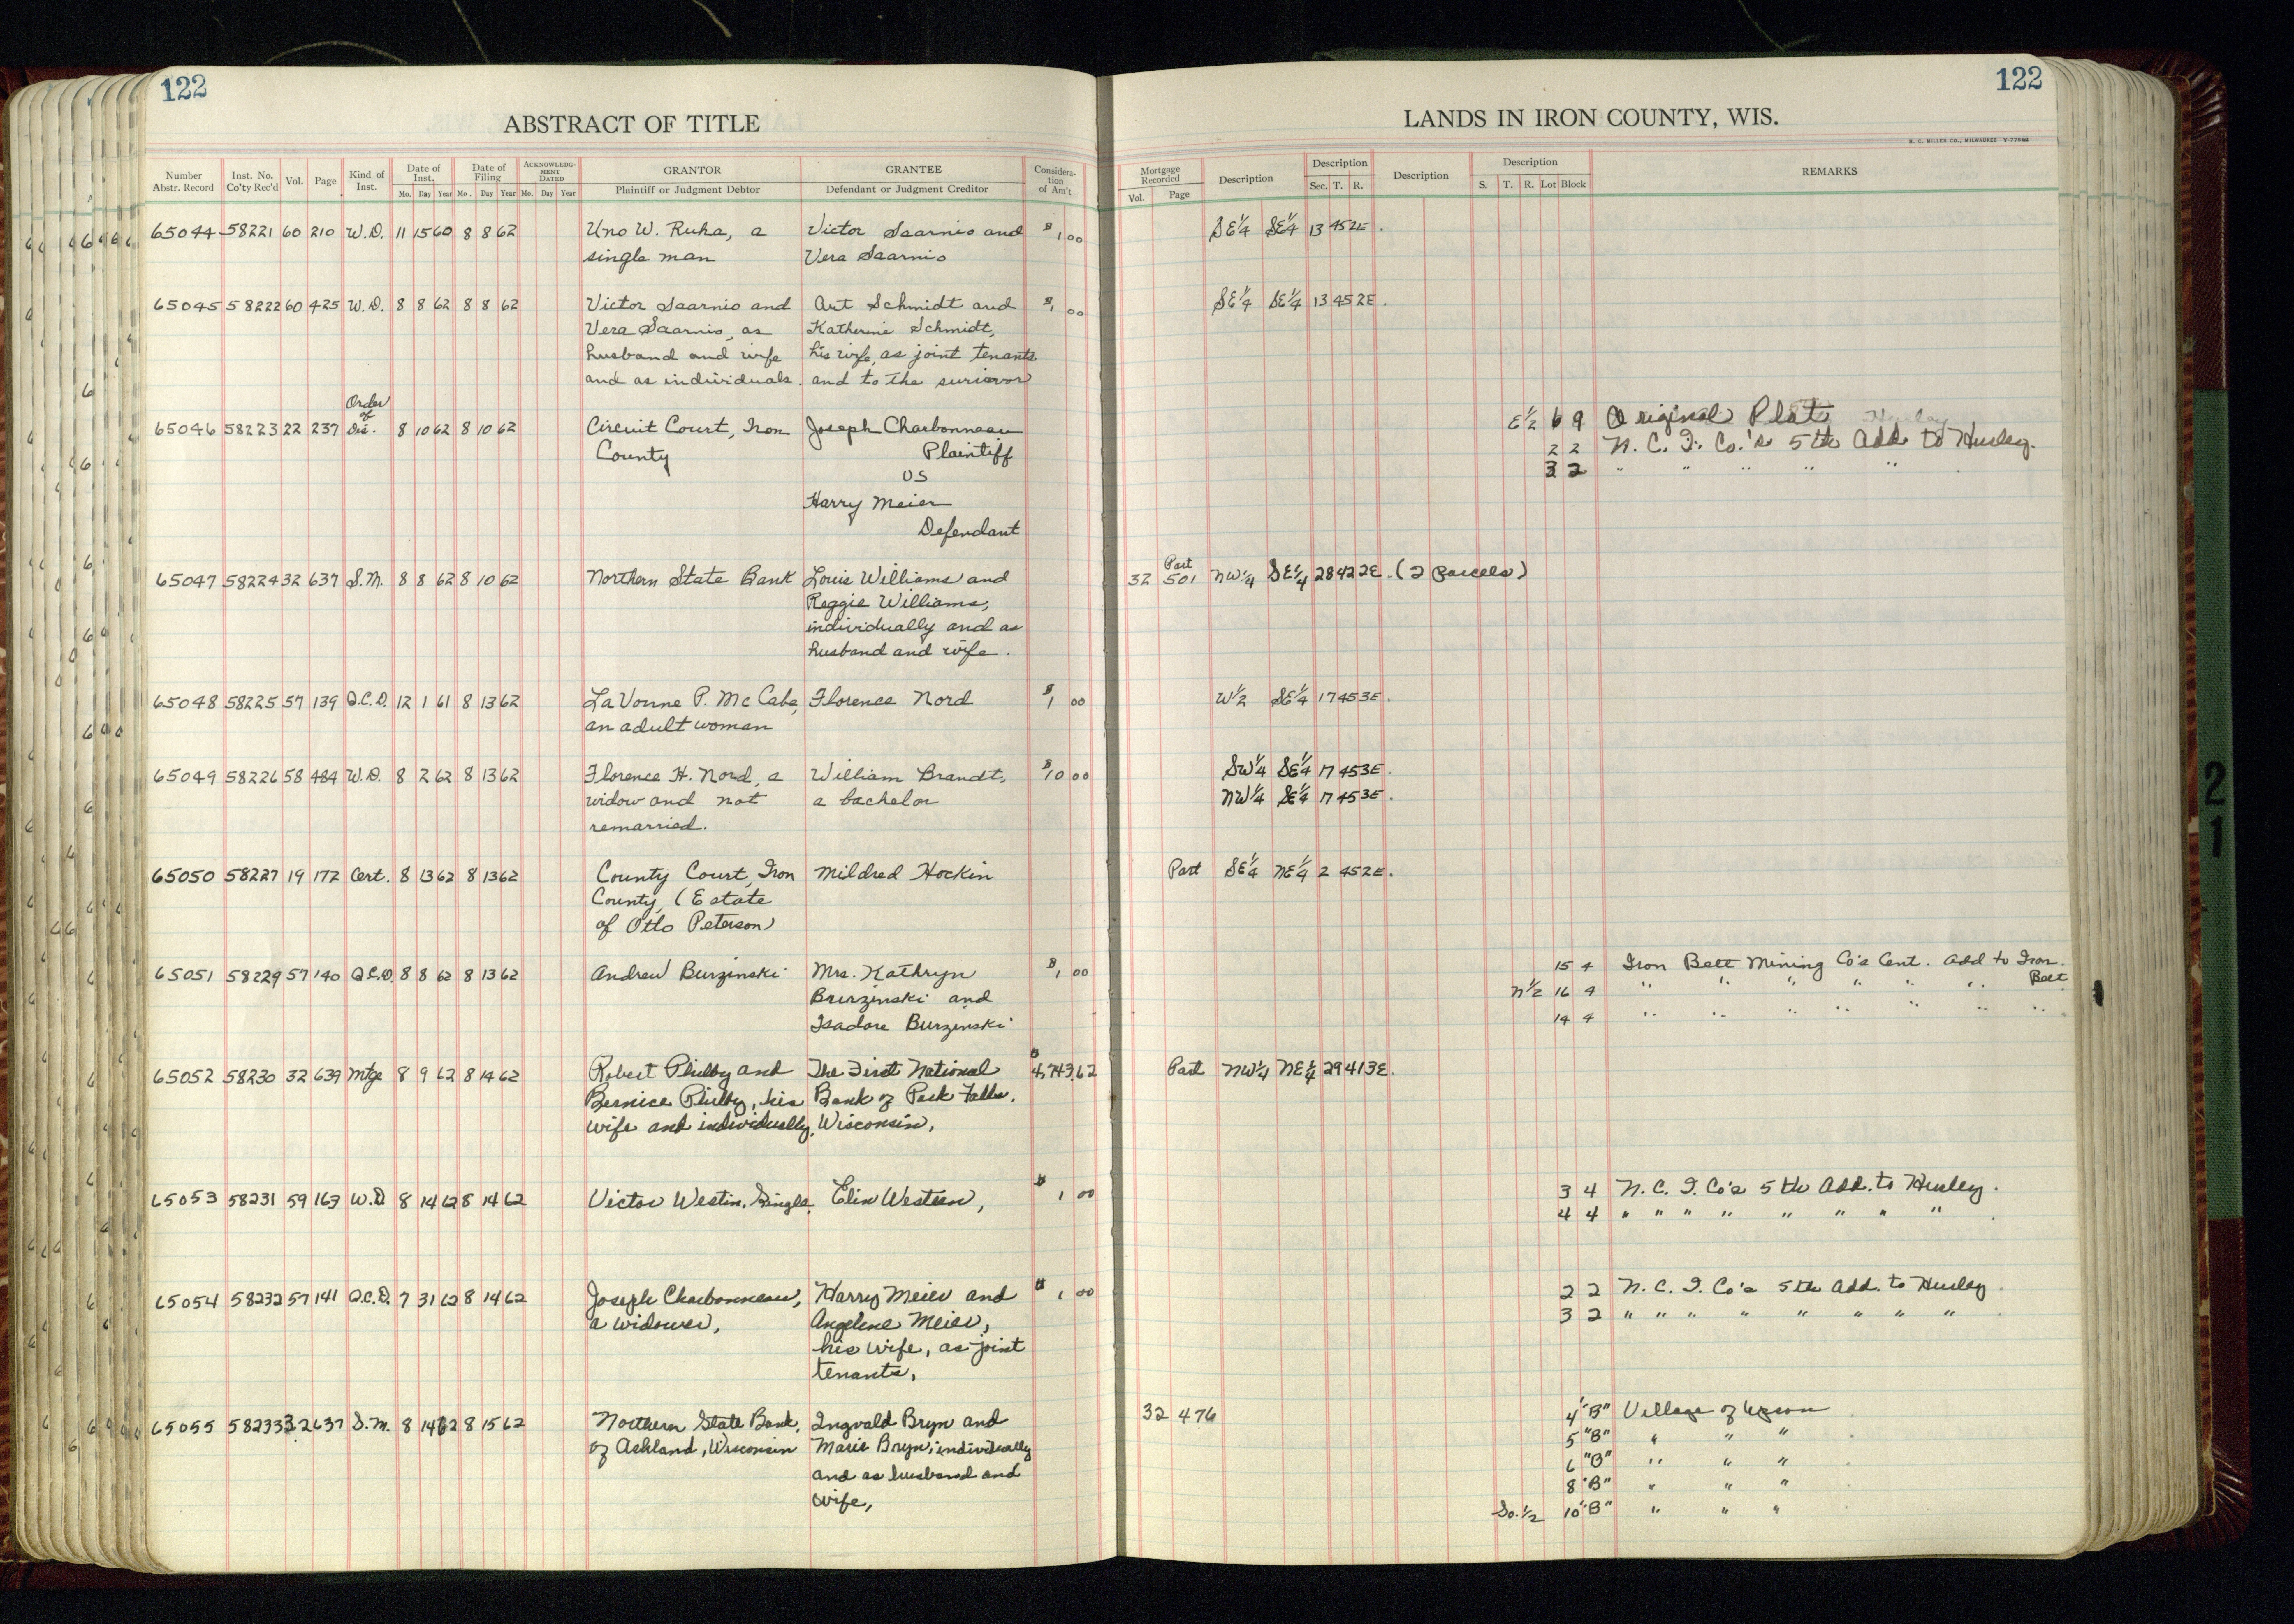 122
ABSTRACT OF TITLE
Number Abstr. Record Inst. No. Co'ty Rec'd Vol. Page Kind of Inst. Date of Inst. Mo. Day Year Date of Filing Mo. Day Year ACKNOWLEDGMENT DATED Mo. Day Year GRANTOR Plaintiff or Judgment Debtor GRANTEE Defendant or Judgment Creditor Consideration of Am't
65044 58221 60 210 W.D. 11 15 60 8 8 62 Uno W. Ruha, a Victor Saarnio and $1 00
single man Vera Saarnio
65045 58222 60 425 W.D. 8 8 62 8 8 62 Victor Saarnio and Art Schmidt and $1 00
Vera Saarnio, as Katherine Schmidt,
husband and wife his wife, as joint tenants
and as individuals. and to the surivor
Order
of
65046 58223 22 237 Dis. 8 10 62 8 10 62 Circuit Court, Iron Joseph Charbonneau
County Plaintiff
vs
Harry Meier
Defendant
65047 58224 32 637 S.M. 8 8 62 8 10 62 Northern State Bank Louis Williams and
Reggie Williams,
individually and as
husband and wife.
65048 58225 57 139 Q.C.D. 12 1 61 8 13 62 LaVonne P. McCabe, Florence Nord $1 00
an adult woman
65049 58226 58 484 W.D. 8 2 62 8 13 62 Florence H. Nord, a William Brandt, $10 00
widow and not a bachelor
remarried.
65050 58227 19 172 Cert. 8 13 62 8 13 62 County Court, Iron Mildred Hockin
County, (Estate
of Otto Peterson)
65051 58229 57 140 Q.C.D. 8 8 62 8 13 62 Andrew Burzinski Mrs. Kathryn $1 00
Burzinski and
Isadore Burzinski
65052 58230 32 639 Mtge 8 9 62 8 14 62 Robert Philby and The First National $4,743.62
Bernice Philby, his Bank of Park Falls,
wife and individually, Wisconsin,
65053 58231 59 163 W.D 8 14 62 8 14 62 Victor Westin, Single, Elin Westeen, $1 00
65054 58232 57 141 Q.C.D. 7 31 62 8 14 62 Joseph Charbonneau, Harry Meier and $1 00
a widower, Angeline Meier,
his wife, as joint
tenants,
65055 58233 32 637 S.M. 8 14 62 8 15 62 Northern State Bank, Ingvald Bryn and
of Ashland, Wisconsin Marie Bryn, individually
and as husband and
wife,
122
LANDS IN IRON COUNTY, WIS.
H. C. MILLER CO., MILWAUKEE
Mortgage Recorded Vol. Page Description Description Sec. T. R. Description Description S. T. R. Lot Block REMARKS
SE¼ SE¼ 13 45 2E.
SE¼ SE¼ 13 45 2E.
E½ 6 9 Original Plat Hurley
2 2 N. C. I. Co.'s 5th Add. to Hurley.
3 2 " " " " "
Part
32 501 NW¼ SE¼ 28 42 2E. (2 Parcels)
W½ SE¼ 17 45 3E.
SW¼ SE¼ 17 45 3E.
NW¼ SE¼ 17 45 3E.
Part SE¼ NE¼ 2 45 2E.
15 4 Iron Belt Mining Co's Cent. Add to Iron
Belt
N½ 16 4 " " " " " "
14 4 " " " " " " "
Part NW¼ NE¼ 29 41 3E.
3 4 N. C. I. Co's 5th Add. to Hurley.
4 4 " " " " " " " "
2 2 N. C. I. Co's 5th Add. to Hurley.
3 2 " " " " " " " "
32 476 4 "B" Village of Upson
5 "B" " " "
6 "B" " " "
8 "B" " " "
So. ½ 10 "B" " " "
21